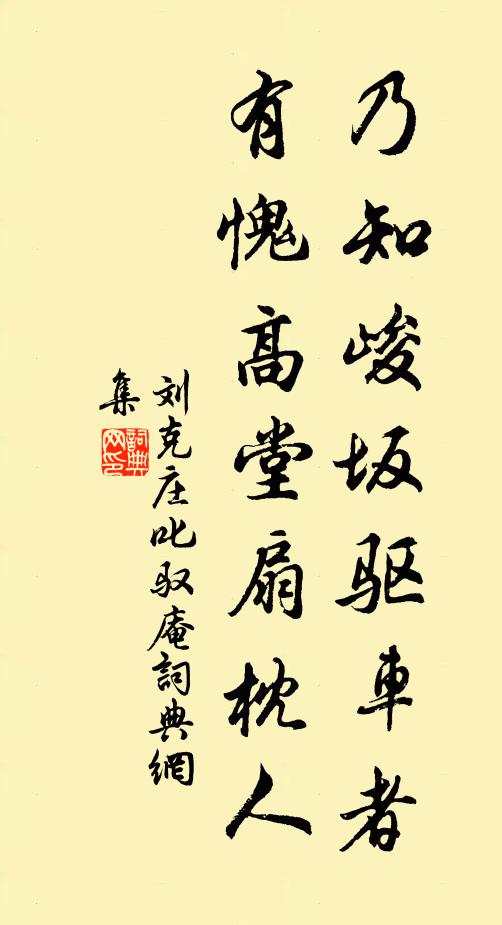 乃知峻坂驱車者
有愧高堂扇枕人
刘克庄叱驭庵詞典網
集
詞典
网印